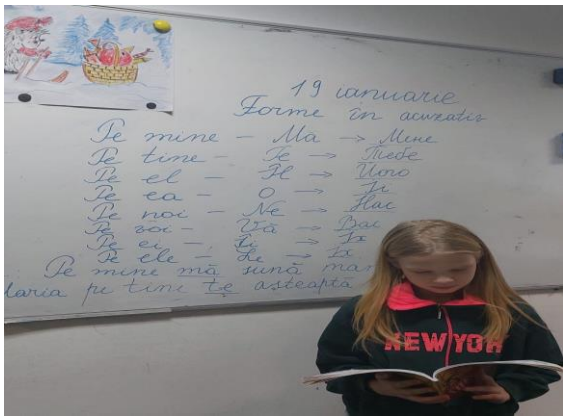 19 ianuarie
Forme în acuzativ
Pe mine – Mă → Мене
Pe tine – Te → Тебе
Pe el – Îl → Його
Pe ea – O → Її
Pe noi – Ne → Нас
Pe voi – Vă → Вас
Pe ei – Îi → Їх
Pe ele – Le → Їх
Pe mine mă sună
Maria pe tine te așteaptă
NEW YOR